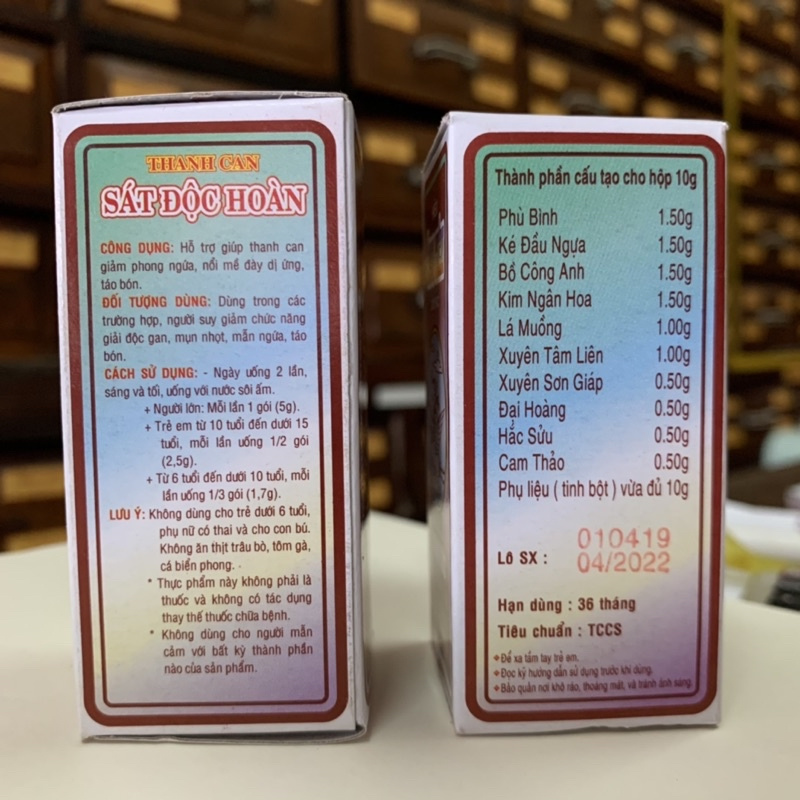 THANH CAN
SÁT ĐỘC HOÀN
CÔNG DỤNG: Hỗ trợ giúp thanh can
giảm phong ngứa, nổi mề đay dị ứng,
táo bón.
ĐỐI TƯỢNG DÙNG: Dùng trong các
trường hợp, người suy giảm chức năng
giải độc gan, mụn nhọt, mẩn ngứa, táo
bón.
CÁCH SỬ DỤNG: - Ngày uống 2 lần,
sáng và tối, uống với nước sôi ấm.
+ Người lớn: Mỗi lần 1 gói (5g).
+ Trẻ em từ 10 tuổi đến dưới 15
tuổi, mỗi lần uống 1/2 gói
(2,5g).
+ Từ 6 tuổi đến dưới 10 tuổi, mỗi
lần uống 1/3 gói (1,7g).
LƯU Ý: Không dùng cho trẻ dưới 6 tuổi,
phụ nữ có thai và cho con bú.
Không ăn thịt trâu bò, tôm gà,
cá biển phong.
* Thực phẩm này không phải là
thuốc và không có tác dụng
thay thế thuốc chữa bệnh.
* Không dùng cho người mẫn
cảm với bất kỳ thành phần
nào của sản phẩm.
Thành phần cấu tạo cho hộp 10g
Phù Bình 1.50g
Ké Đầu Ngựa 1.50g
Bồ Công Anh 1.50g
Kim Ngân Hoa 1.50g
Lá Muồng 1.00g
Xuyên Tâm Liên 1.00g
Xuyên Sơn Giáp 0.50g
Đại Hoàng 0.50g
Hắc Sửu 0.50g
Cam Thảo 0.50g
Phụ liệu ( tinh bột ) vừa đủ 10g
Lô SX : 010419
04/2022
Hạn dùng : 36 tháng
Tiêu chuẩn : TCCS
❖Để xa tầm tay trẻ em.
❖Đọc kỹ hướng dẫn sử dụng trước khi dùng.
❖Bảo quản nơi khô ráo, thoáng mát, và tránh ánh sáng